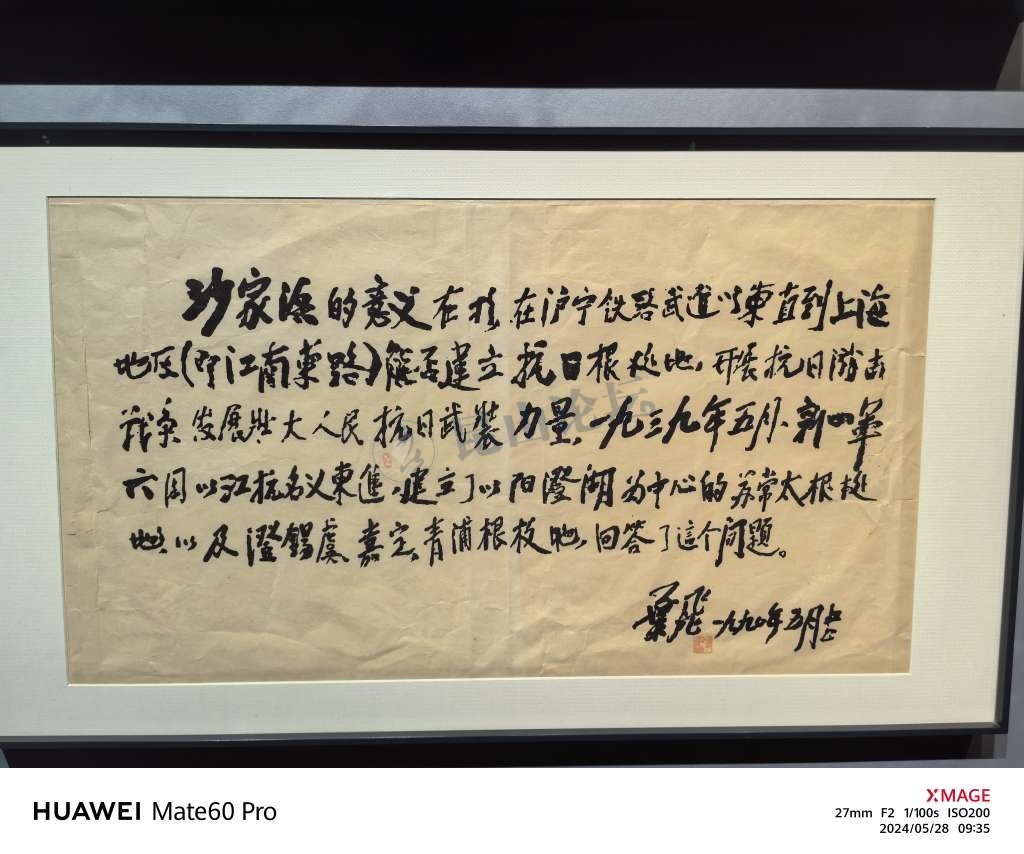 沙家浜的意义在于在沪宁铁路武进以東直到上海
地区(即江南東路)能否建立抗日根据地,开展抗日游击
战争发展壮大人民抗日武装力量,一九三九年五月、新四軍
六团以江抗名义東進,建立了以阳澄湖为中心的苏常太根据
地以及澄錫虞、嘉定、青浦根据地,回答了这个问题。
葉飛 一九九〇年五月
昆山论坛
HUAWEI Mate60 Pro
XMAGE
27mm F2 1/100s ISO200
2024/05/28 09:35